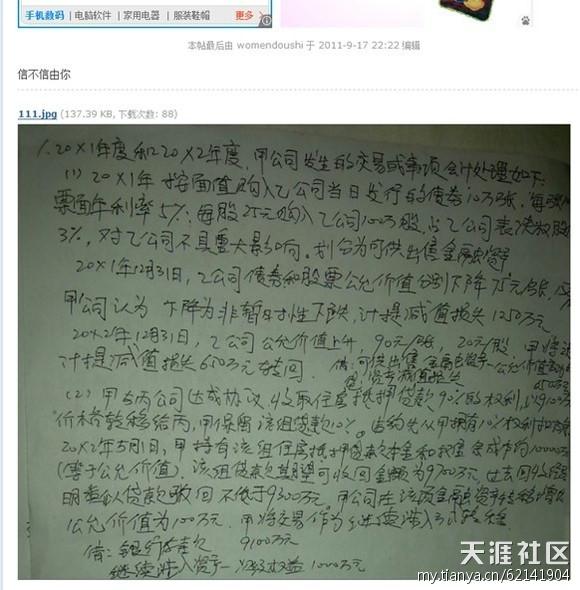 手机数码 | 电脑软件 | 家用电器 | 服装鞋帽 更多 >
本帖最后由 womendoushi 于 2011-9-17 22:22 编辑
信不信由你
111.jpg (137.39 KB, 下载次数: 88)
1. 20×1年度和20×2年度,甲公司发生的交易或事项会计处理如下:
(1) 20×1年按面值购入乙公司当日发行的债券10万张,每张
票面年利率5%;每股25元购入乙公司100万股,占乙公司表决权股
3%,对乙公司不具重大影响。划分为可供出售金融资产
20×1年12月31日,乙公司债券和股票公允价值分别下降75元/张,
甲公司认为 下降为非暂时性下跌,计提减值损失1250万元
20×2年12月31日,乙公司公允价值上升,90元/张,20元/股,甲将
计提减值损失650万元转回。借:可供出售金融资产—公允价值变动
贷:资产减值损失 650万
(2) 甲与丙公司达成协议,收取住房抵押贷款90%的权利,以9100万
价格转移给丙,甲保留该组贷款10%。
20×2年5月1日,甲持有该组住房抵押贷款本金和 成本均10000万
(等于公允价值),该组贷款期望可收回金额为9700万元,过去
明类似贷款 回不低于9300万元。甲公司在该项金融资产转移
公允价值为100万元。甲将交易作为继续涉入 转移
借:银行存款 9100万元
继续涉入资产—次级权益 1000万元
天涯社区
my.tianya.cn/62141904